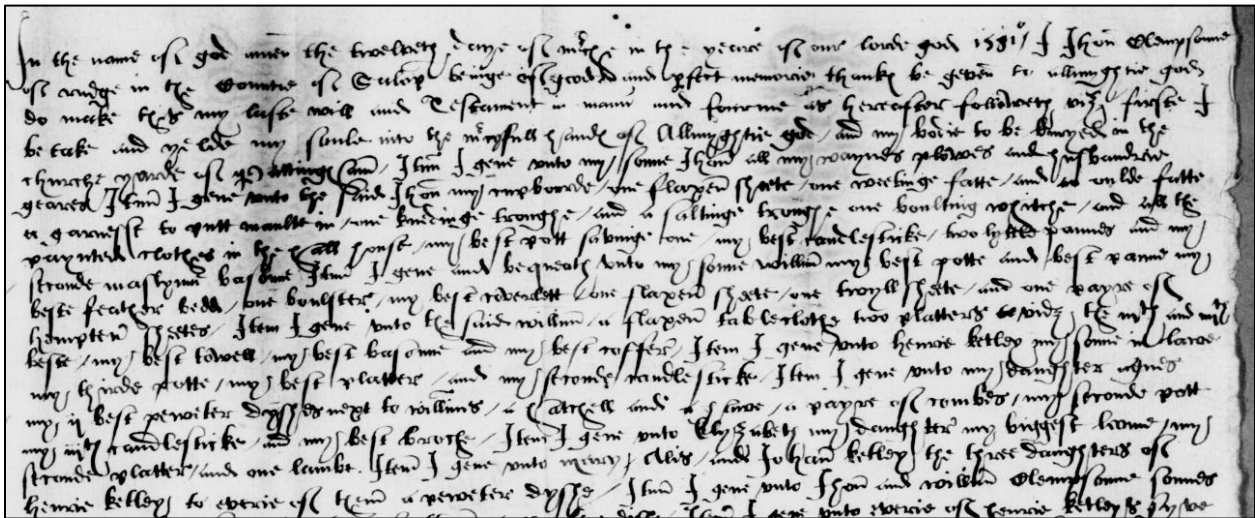 In the name of god amen the twelveth daye of m'che in the yeare of our lorde god 1581 / I Jhon Clempsonne
of rudge in the Countie of Salop beinge of good and p'fect memorie thanks be geven to allmightie god
do make this my laste will and Testament in mann' and fourme as hereafter followeth viz / firste I
betake and yelde my soule into the m'cyfull hands of Allmyghtie god / and my bodie to be buryed in the
churche yarde of / Itm I geve unto my sonne Jhon all my waynes plowes and husbandrie
geares / Itm I geve unto the said Jhon my cupborde / one flaxen sheete / one weetinge fatte / and fatte
a garnesst to putt maulte in / one kneadinge troughe / and a saltinge troughe one boulting whitche / and all the
paynted clothes in the hall house / my best pott savinge one / my best candlesticke / two lyttle pannes and my
seconde maslynn basonne Itm I geve and bequeath unto my sonne willm my best potte and best panne my
beste feather bedd / one boulster / my best coverlett / one flaxen sheete / one twyll sheete / and one payre of
hempten sheetes / Item I geve unto the said willm a flaxen tableclothe two platters the and
beste / my best towell / my best basonne and my best coffer / Item I geve unto henrie ketley my sonne in lawe
my thirde potte / my best platter / and my seconde candlesticke / Item I geve unto my daughter agnes
my ij best peweter dysshes next to willms / a hatchell and a / a payre of combes / my seconde pott
my iijth candlesticke / and my best broche / Item I geve unto Elyzabeth my daughter my biggest / my
seconde platter / and one lambe. Item I geve unto mercy / Alis / and Johan ketley the three daughters of
henrie ketley / to everie of them a pewetere dysshe / Itm I geve unto Jhon and willm Clempsonne sonnes
I geve unto everie of henrie ketleys